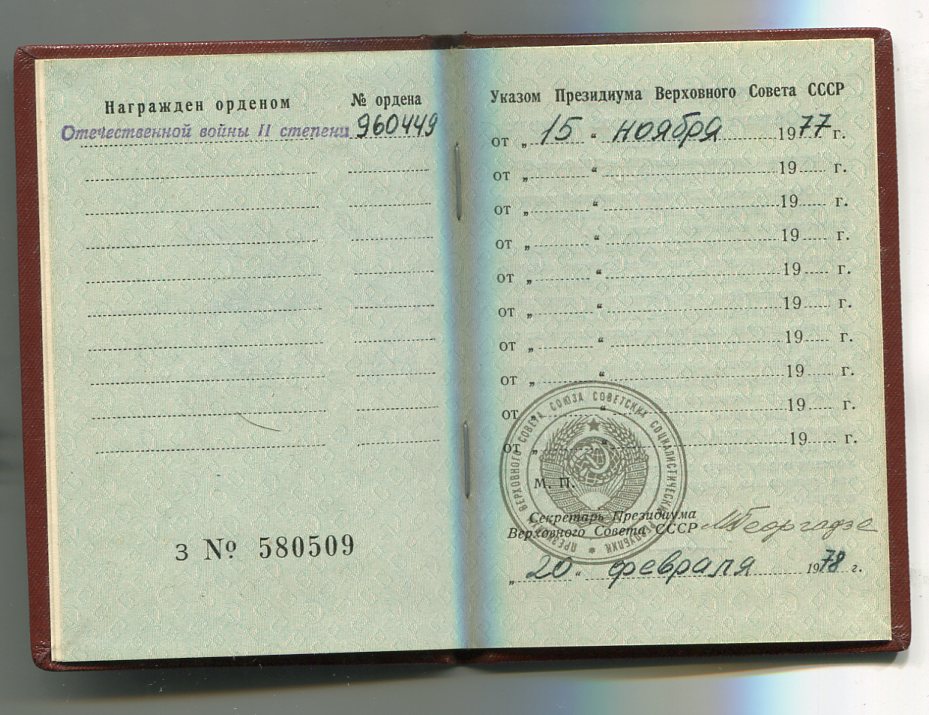 Награжден орденом
№ ордена
Отечественной войны II степени 960449
З № 580509
Указом Президиума Верховного Совета СССР
от „ 15 “ ноября 1977 г.
от „ “ 19 г.
от „ “ 19 г.
от „ “ 19 г.
от „ “ 19 г.
от „ “ 19 г.
от „ “ 19 г.
от „ “ 19 г.
от „ “ 19 г.
от „ “ 19 г.
ПРЕЗИДИУМ ВЕРХОВНОГО СОВЕТА СОЮЗА СОВЕТСКИХ СОЦИАЛИСТИЧЕСКИХ РЕСПУБЛИК
М. П.
Секретарь Президиума
Верховного Совета СССР МГеоргадзе
„ 20 “ февраля 1978 г.